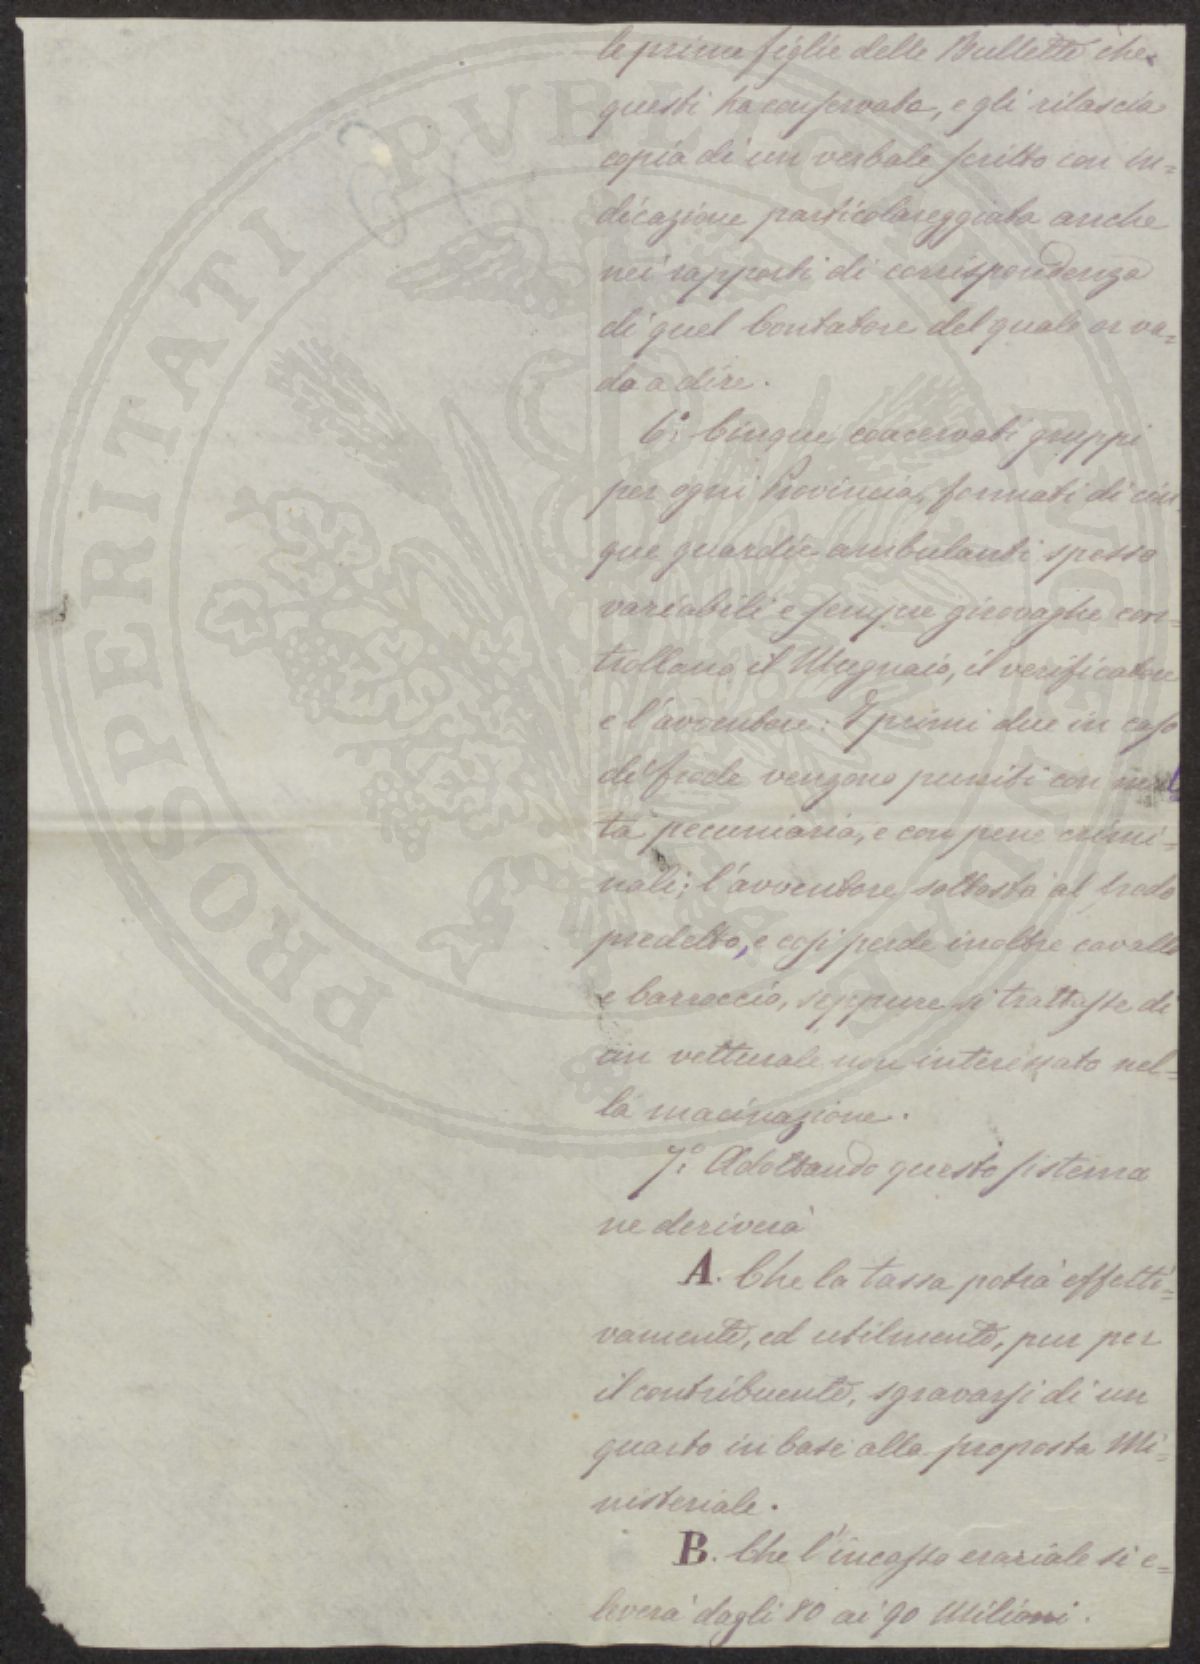 le prime figlie delle Bullette che
questi ha conservato, e gli rilascia
copia di un verbale scritto con in=
dicazione particolareggiata anche
nei rapporti di corrispondenza
di quel Contatore del quale or va=
do a dire.
6.° Cinque concervati gruppi
per ogni Provincia, formati di cin
que guardie ambulanti spesso
variabili e sempre girovaghe con=
trollano il Mugnaio, il verificatore
e l'avventore: I primi due in caso
di frode vengono puniti con mul
ta pecuniaria, e con pene crimi=
nali; l'avventore sottostà al
predetto, e così perde inoltre cavallo
e barroccio, seppure si trattasse di
un vetturale non interessato nel=
la macinazione.
7.° Adottando questo sistema
ne deriverà
A. Che la tassa potrà effetti=
vamente, ed utilmente, pur per
il contribuente, sgravarsi di un
quarto in base alla proposta Mi=
nisteriale.
B. Che l'incasso erariale si e=
leverà dagli 80 ai 90 Milioni.
PROSPERITATI PVBLICAE AVGENDAE